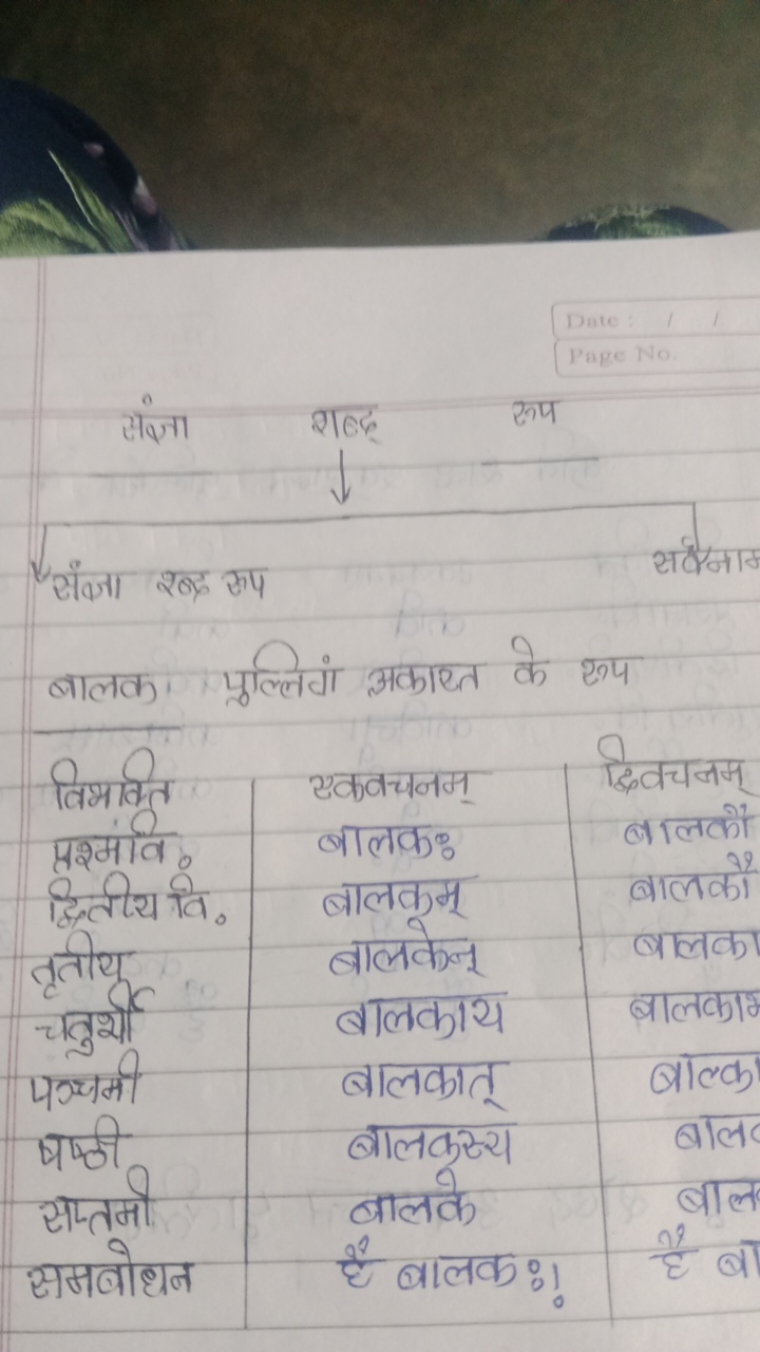 Date : / /
Page No.
संज्ञा शब्द् रूप
संज्ञा श्बद रूप सर्वनाम
बालक पुल्लिगं अकारत के रूप
विभक्ति एकवचनम् द्विवचनम्
वि. बालकः बालकौ
द्वितीय वि. बालकम् बालकौ
तृतीय बालकेन् बालका
चतुर्थी बालकाय बालकाभ
पञ्चमी बालकात् बाल्का
षष्ठी बालकस्य बाल
सप्तमी बालके बाल
समबोधन है बालकः! है बा